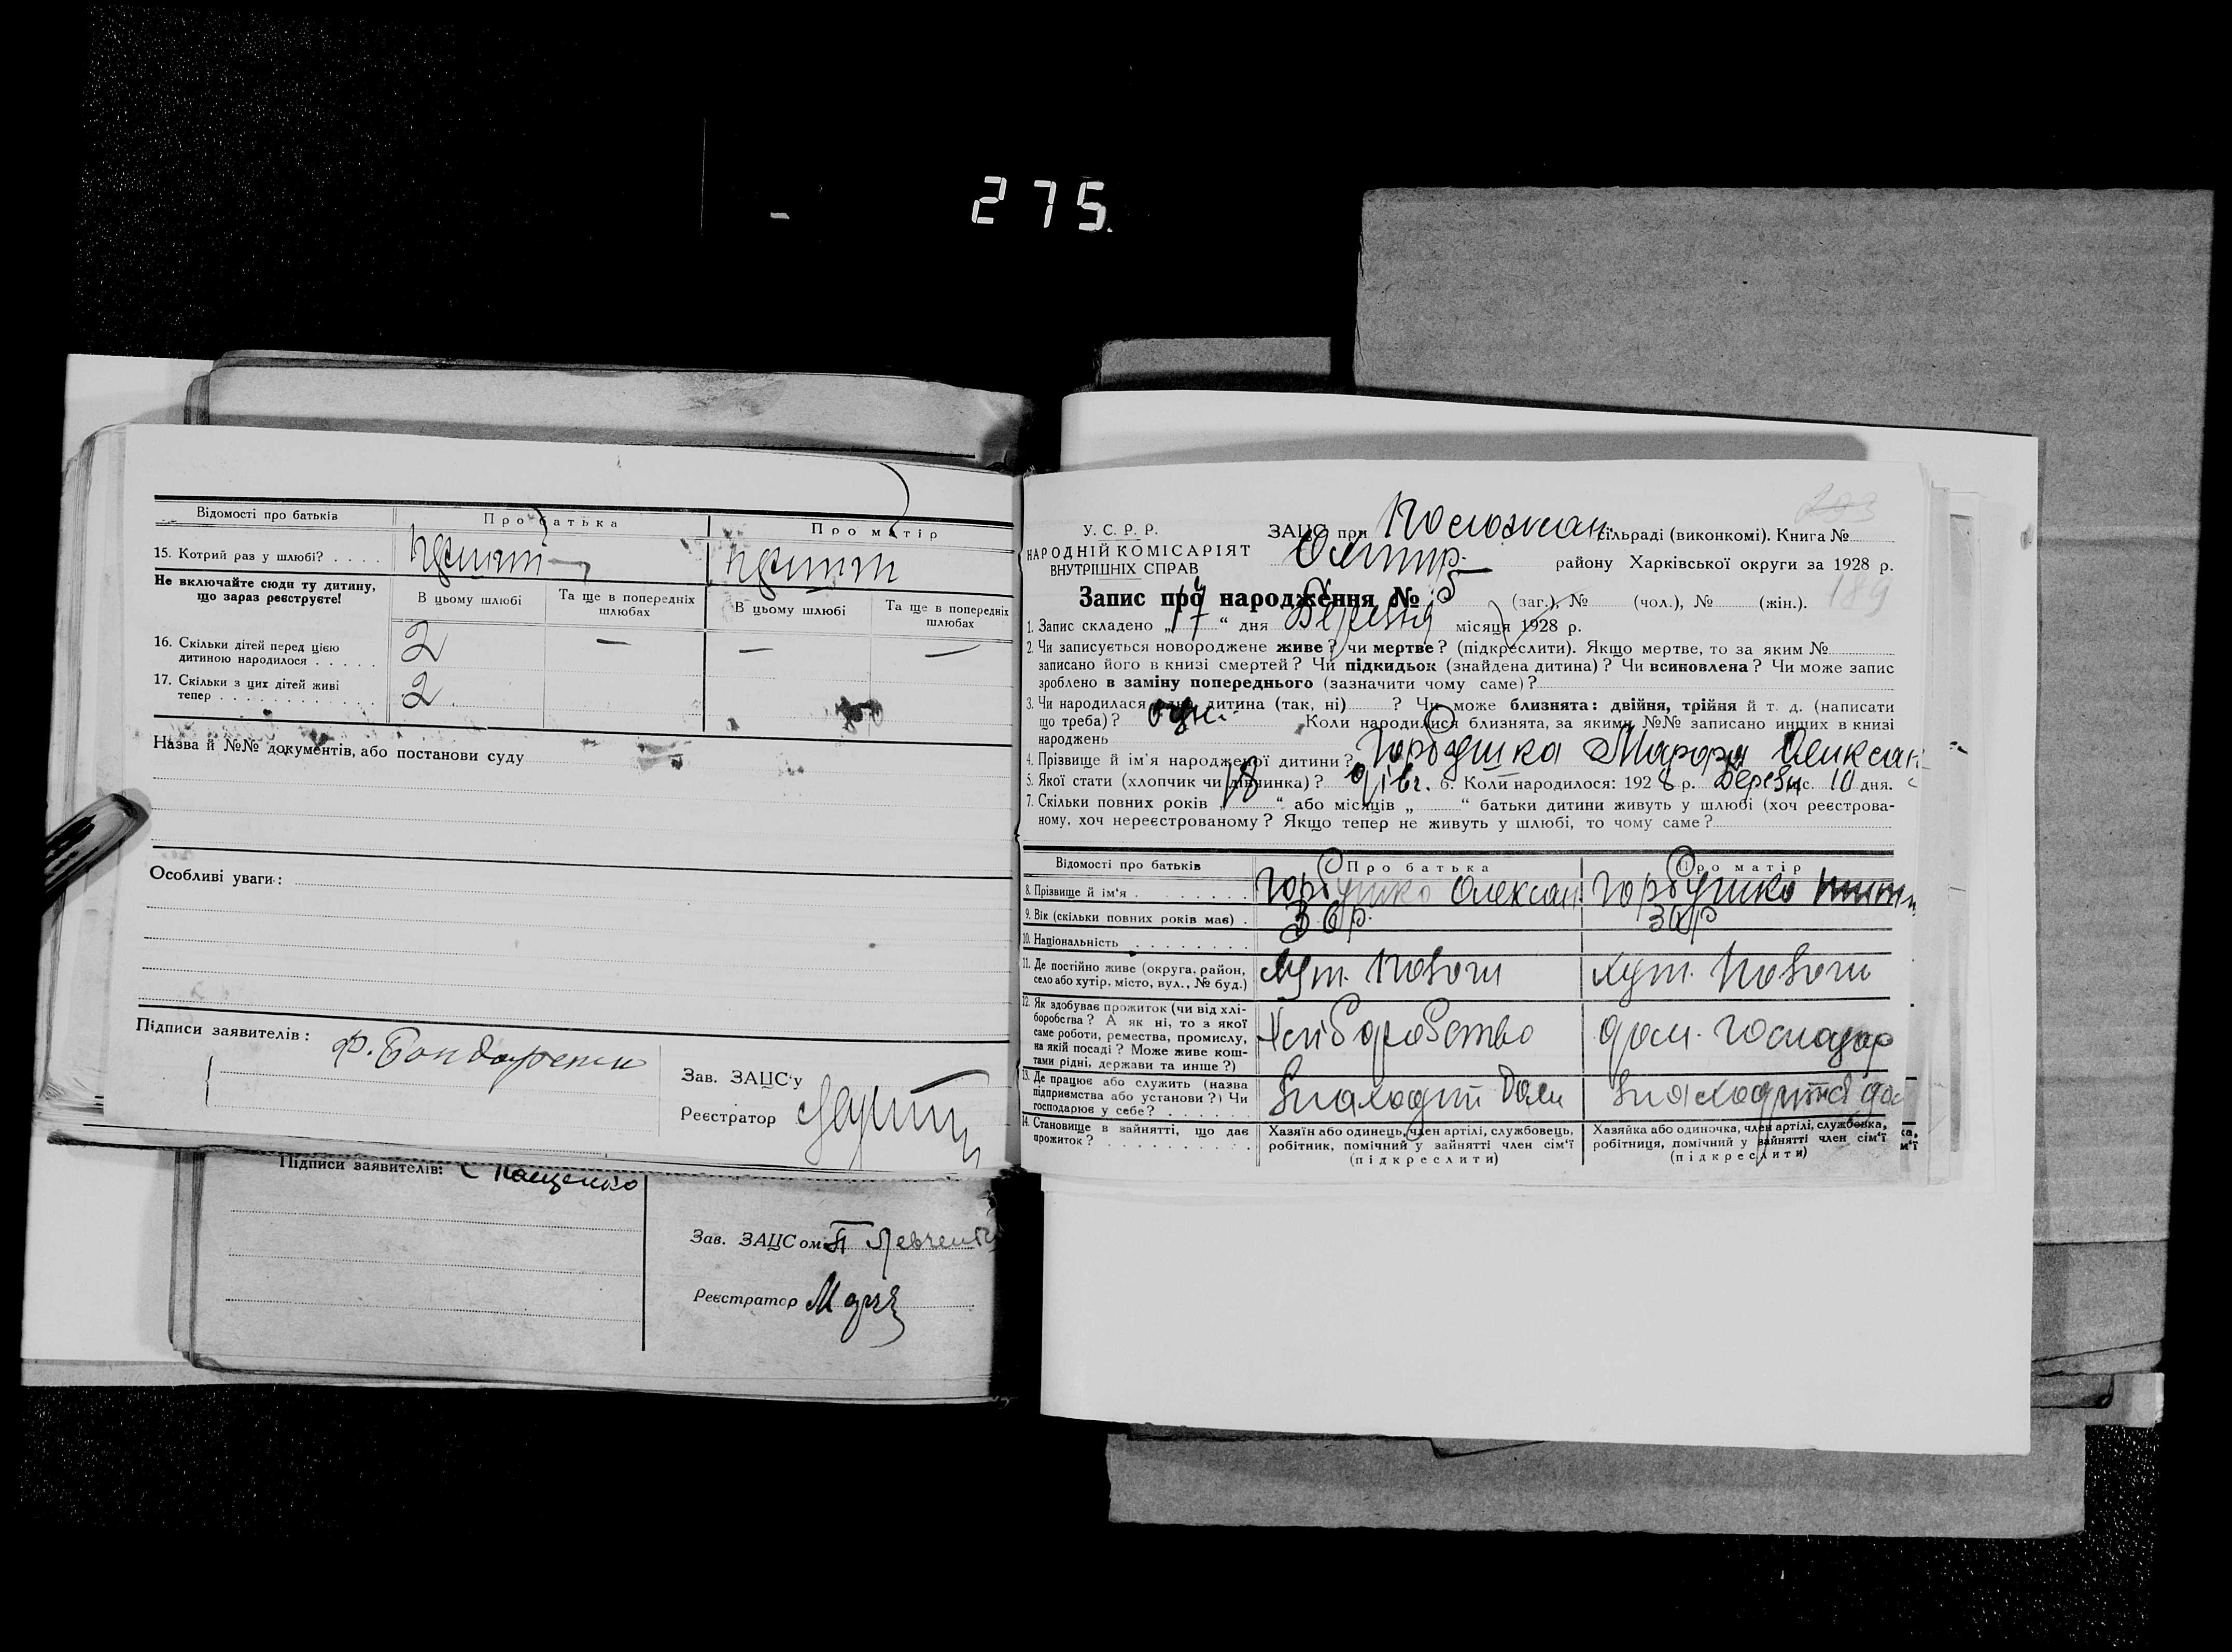 275.
Відомості про батьків
Про батька
Про матір
15. Котрий раз у шлюбі? . . . .
Не включайте сюди ту дитину,
що зараз реєструєте!
В цьому шлюбі
Та ще в попередніх
шлюбах
В цьому шлюбі
Та ще в попередніх
шлюбах
16. Скільки дітей перед цією
дитиною народилося . . . . .
2 — — —
17. Скільки з цих дітей живі
тепер . . . . . . . . . . . .
2
Назва й №№ документів, або постанови суду
Особливі уваги:
Підписи заявителів:
Ф. Бондаренко
Зав. ЗАЦС'у
Реєстратор
Підписи заявителів: Пащенко
Зав. ЗАЦСом П Левченко
Реєстратор
У.С.Р.Р.
НАРОДНІЙ КОМІСАРІЯТ
ВНУТРІШНІХ СПРАВ
203
ЗАЦС при сільраді (виконкомі). Книга №
району Харківської округи за 1928 р.
189
Запис про народження № 5 (заг.), № (чол.), № (жін.).
1. Запис складено „17“ дня Березня місяця 1928 р.
2. Чи записується новороджене живе? чи мертве? (підкреслити). Якщо мертве, то за яким №
записано його в книзі смертей? Чи підкидьок (знайдена дитина)? Чи всиновлена? Чи може запис
зроблено в заміну попереднього (зазначити чому саме)?
3. Чи народилася одна дитина (так, ні) ? Чи може близнята: двійня, трійня й т. д. (написати
що треба)? Коли народилися близнята, за якими №№ записано инших в книзі
народжень
4. Прізвище й ім'я народженої дитини? Горбушка Олексан
5. Якої статі (хлопчик чи дівчинка)? дівч. 6. Коли народилося: 1928 р. Березн с. 10 дня.
7. Скільки повних років „18“ або місяців „ “ батьки дитини живуть у шлюбі (хоч реєстрова-
ному, хоч нереєстрованому? Якщо тепер не живуть у шлюбі, то чому саме?
Відомості про батьків
Про батька
Про матір
8. Прізвище й ім'я . . . . . . . .
Горбушко Олексан.
Горбушко
9. Вік (скільки повних років має) .
36р.
30р
10. Національність . . . . . . . .
11. Де постійно живе (округа, район,
село або хутір, місто, вул., № буд.)
хут.
хут.
12. Як здобуває прожиток (чи від хлі-
боробства? А як ні, то з якої
саме роботи, ремества, промислу,
на якій посаді? Може живе кош-
тами рідні, держави та инше?)
Хліборобство
дом. господар
13. Де працює або служить (назва
підприємства або установи?) Чи
господарює у себе? . . . . . .
14. Становище в зайнятті, що дає
прожиток? . . . . . . . . . .
Хазяїн або одинець, член артілі, службовець,
робітник, помічний у зайнятті член сім'ї
(підкреслити)
Хазяйка або одиночка, член артілі, службовка,
робітниця, помічний у зайнятті член сім'ї
(підкреслити)